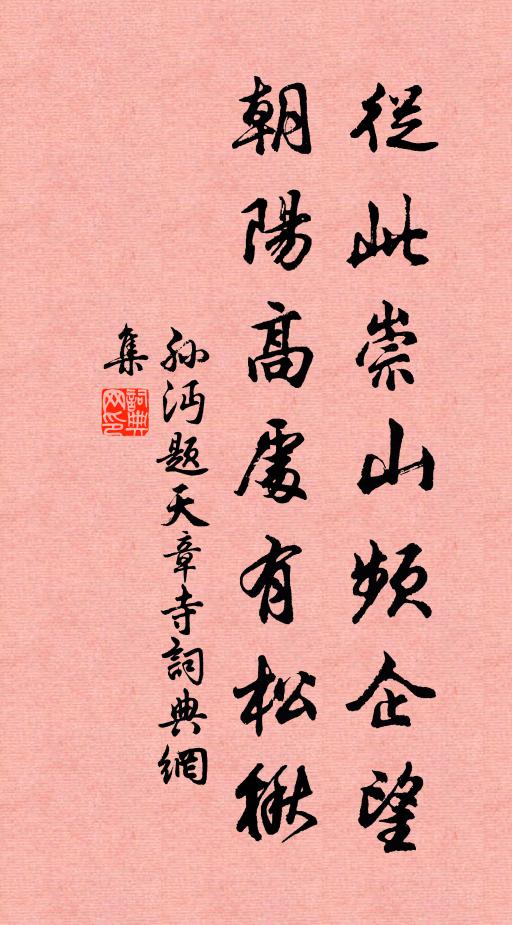 從此崇山頻企望
朝陽高處有松楸
孫沔題天章寺詞典網
集
詞典
网印